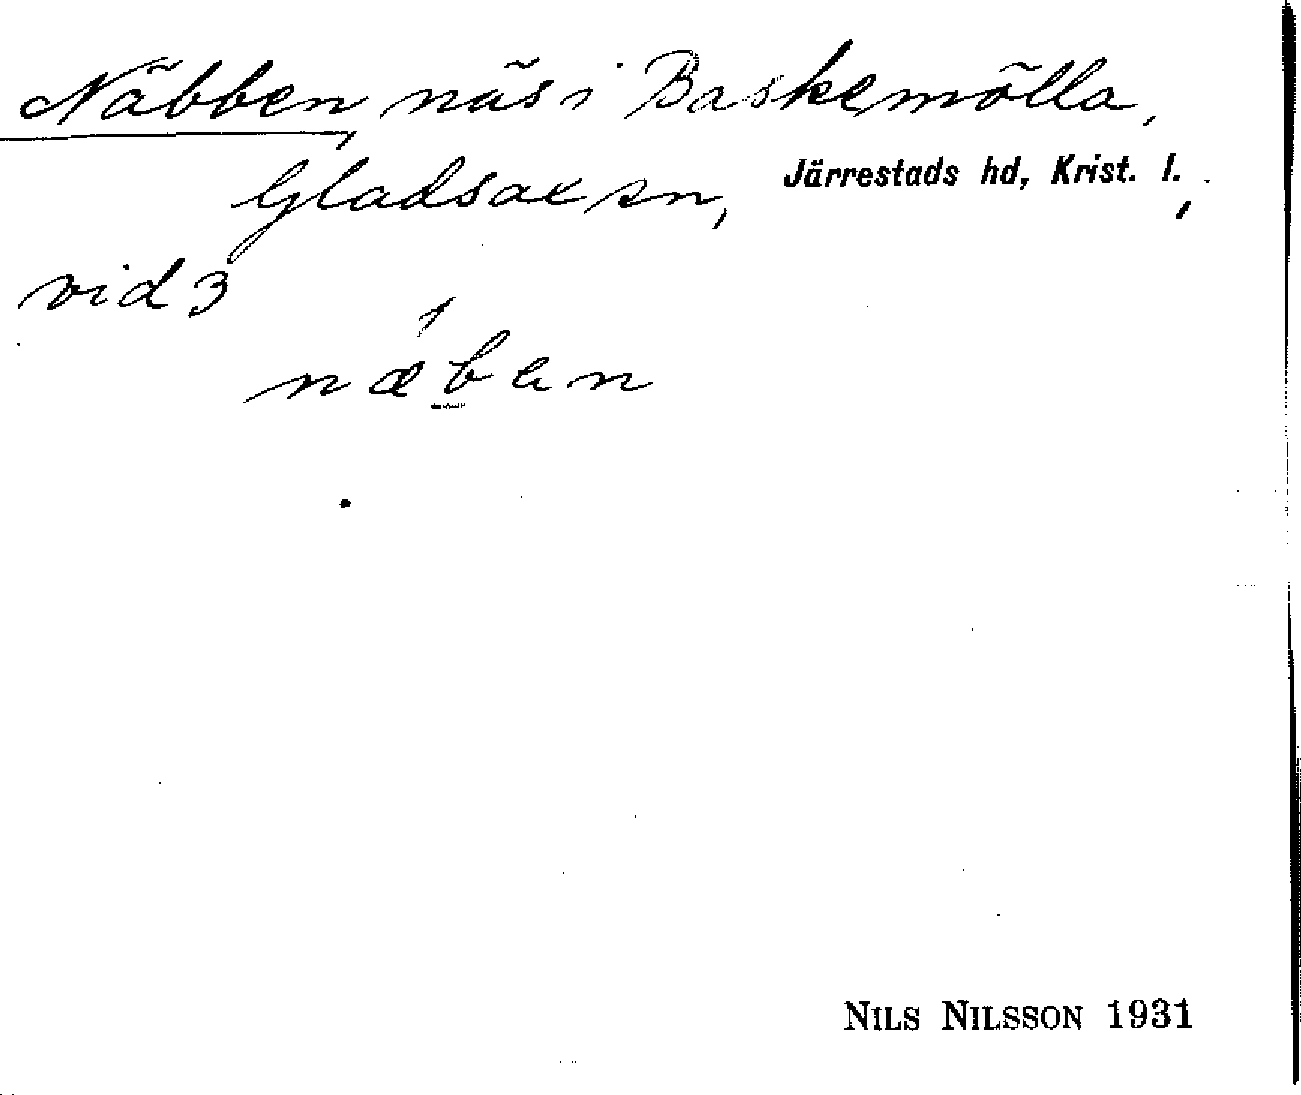 Näbben, näs i Baskemölla,
Gladsax sn, Järrestads hd, Krist. l.,
vid 3
næben
NILS NILSSON 1931